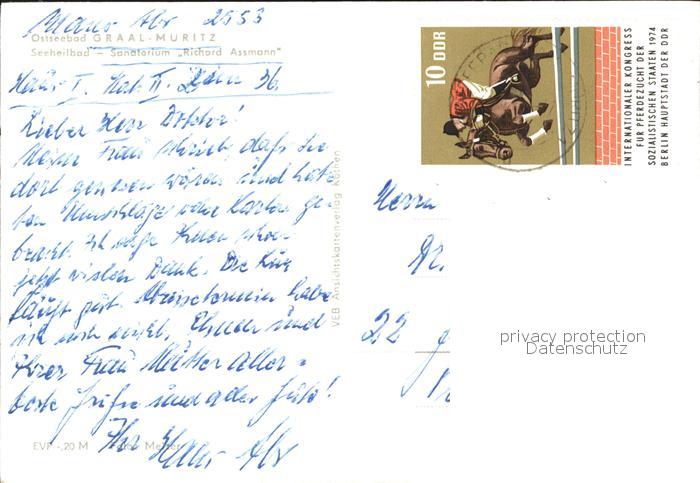 Hans Abr 2553
Ostseebad GRAAL-MÜRITZ
Seeheilbad – Sanatorium „Richard Assmann“
Haus I. Stat. II. 36
Lieber Herr Doktor!
Meine Frau schrieb, daß Sie
dort gewesen wären und hat
ben Umschläge oder Karten ge-
bracht. Ich sage Ihnen schon
jetzt vielen Dank. Die Kur
läuft gut. habe
ich noch nicht. Ihnen und
Ihrer Frau Mutter aller-
beste Grüße und alles Gute!
Ihr Hans Abr
EVP -,20 M
VEB Ansichtskartenverlag Köthen
10 DDR
INTERNATIONALER KONGRESS
FÜR PFERDEZUCHT DER
SOZIALISTISCHEN STAATEN 1974
BERLIN HAUPTSTADT DER DDR
Herrn
Dr.
22
privacy protection
Datenschutz